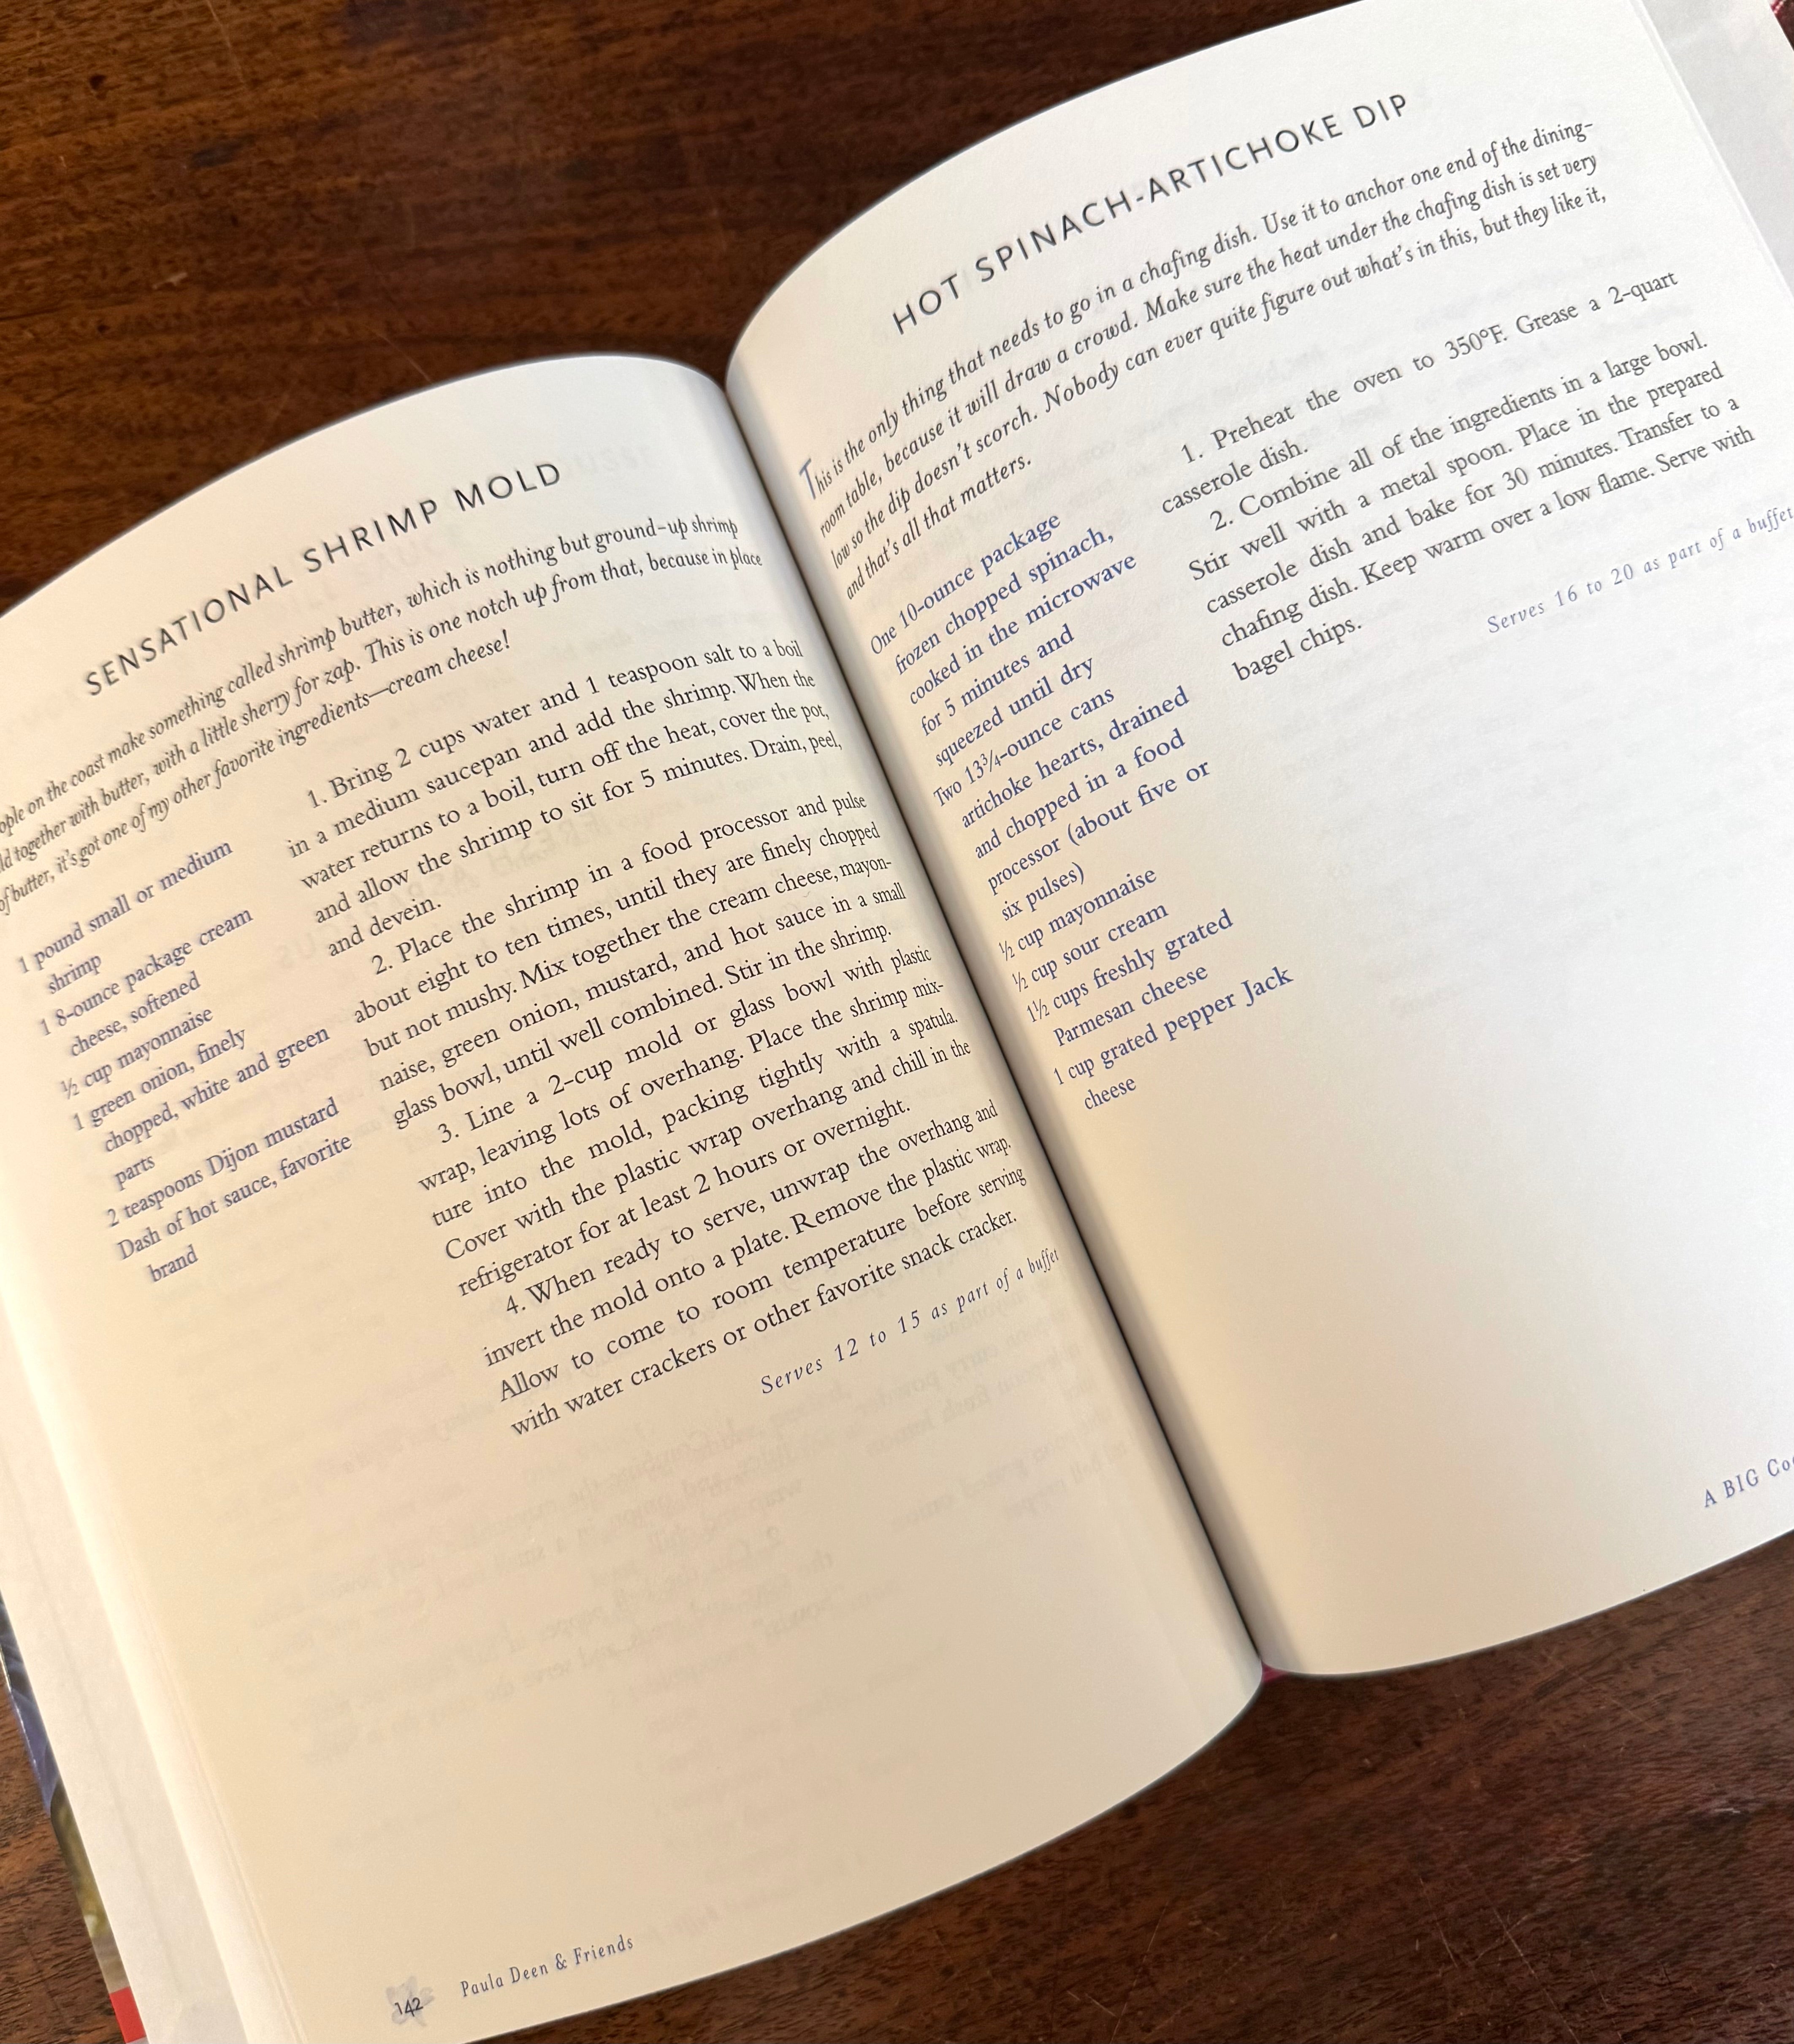 SENSATIONAL SHRIMP MOLD
ople on the coast make something called shrimp butter, which is nothing but ground-up shrimp
ld together with butter, with a little sherry for zap. This is one notch up from that, because in place
of butter, it's got one of my other favorite ingredients—cream cheese!
1 pound small or medium
shrimp
1 8-ounce package cream
cheese, softened
½ cup mayonnaise
1 green onion, finely
chopped, white and green
parts
2 teaspoons Dijon mustard
Dash of hot sauce, favorite
brand
1. Bring 2 cups water and 1 teaspoon salt to a boil
in a medium saucepan and add the shrimp. When the
water returns to a boil, turn off the heat, cover the pot,
and allow the shrimp to sit for 5 minutes. Drain, peel,
and devein.
2. Place the shrimp in a food processor and pulse
about eight to ten times, until they are finely chopped
but not mushy. Mix together the cream cheese, mayon-
naise, green onion, mustard, and hot sauce in a small
glass bowl, until well combined. Stir in the shrimp.
3. Line a 2-cup mold or glass bowl with plastic
wrap, leaving lots of overhang. Place the shrimp mix-
ture into the mold, packing tightly with a spatula.
Cover with the plastic wrap overhang and chill in the
refrigerator for at least 2 hours or overnight.
4. When ready to serve, unwrap the overhang and
invert the mold onto a plate. Remove the plastic wrap.
Allow to come to room temperature before serving
with water crackers or other favorite snack cracker.
Serves 12 to 15 as part of a buffet
142 Paula Deen & Friends
HOT SPINACH-ARTICHOKE DIP
This is the only thing that needs to go in a chafing dish. Use it to anchor one end of the dining-
room table, because it will draw a crowd. Make sure the heat under the chafing dish is set very
low so the dip doesn't scorch. Nobody can ever quite figure out what's in this, but they like it,
and that's all that matters.
One 10-ounce package
frozen chopped spinach,
cooked in the microwave
for 5 minutes and
squeezed until dry
Two 13¾-ounce cans
artichoke hearts, drained
and chopped in a food
processor (about five or
six pulses)
½ cup mayonnaise
½ cup sour cream
1½ cups freshly grated
Parmesan cheese
1 cup grated pepper Jack
cheese
1. Preheat the oven to 350°F. Grease a 2-quart
casserole dish.
2. Combine all of the ingredients in a large bowl.
Stir well with a metal spoon. Place in the prepared
casserole dish and bake for 30 minutes. Transfer to a
chafing dish. Keep warm over a low flame. Serve with
bagel chips.
Serves 16 to 20 as part of a buffet
A BIG Co